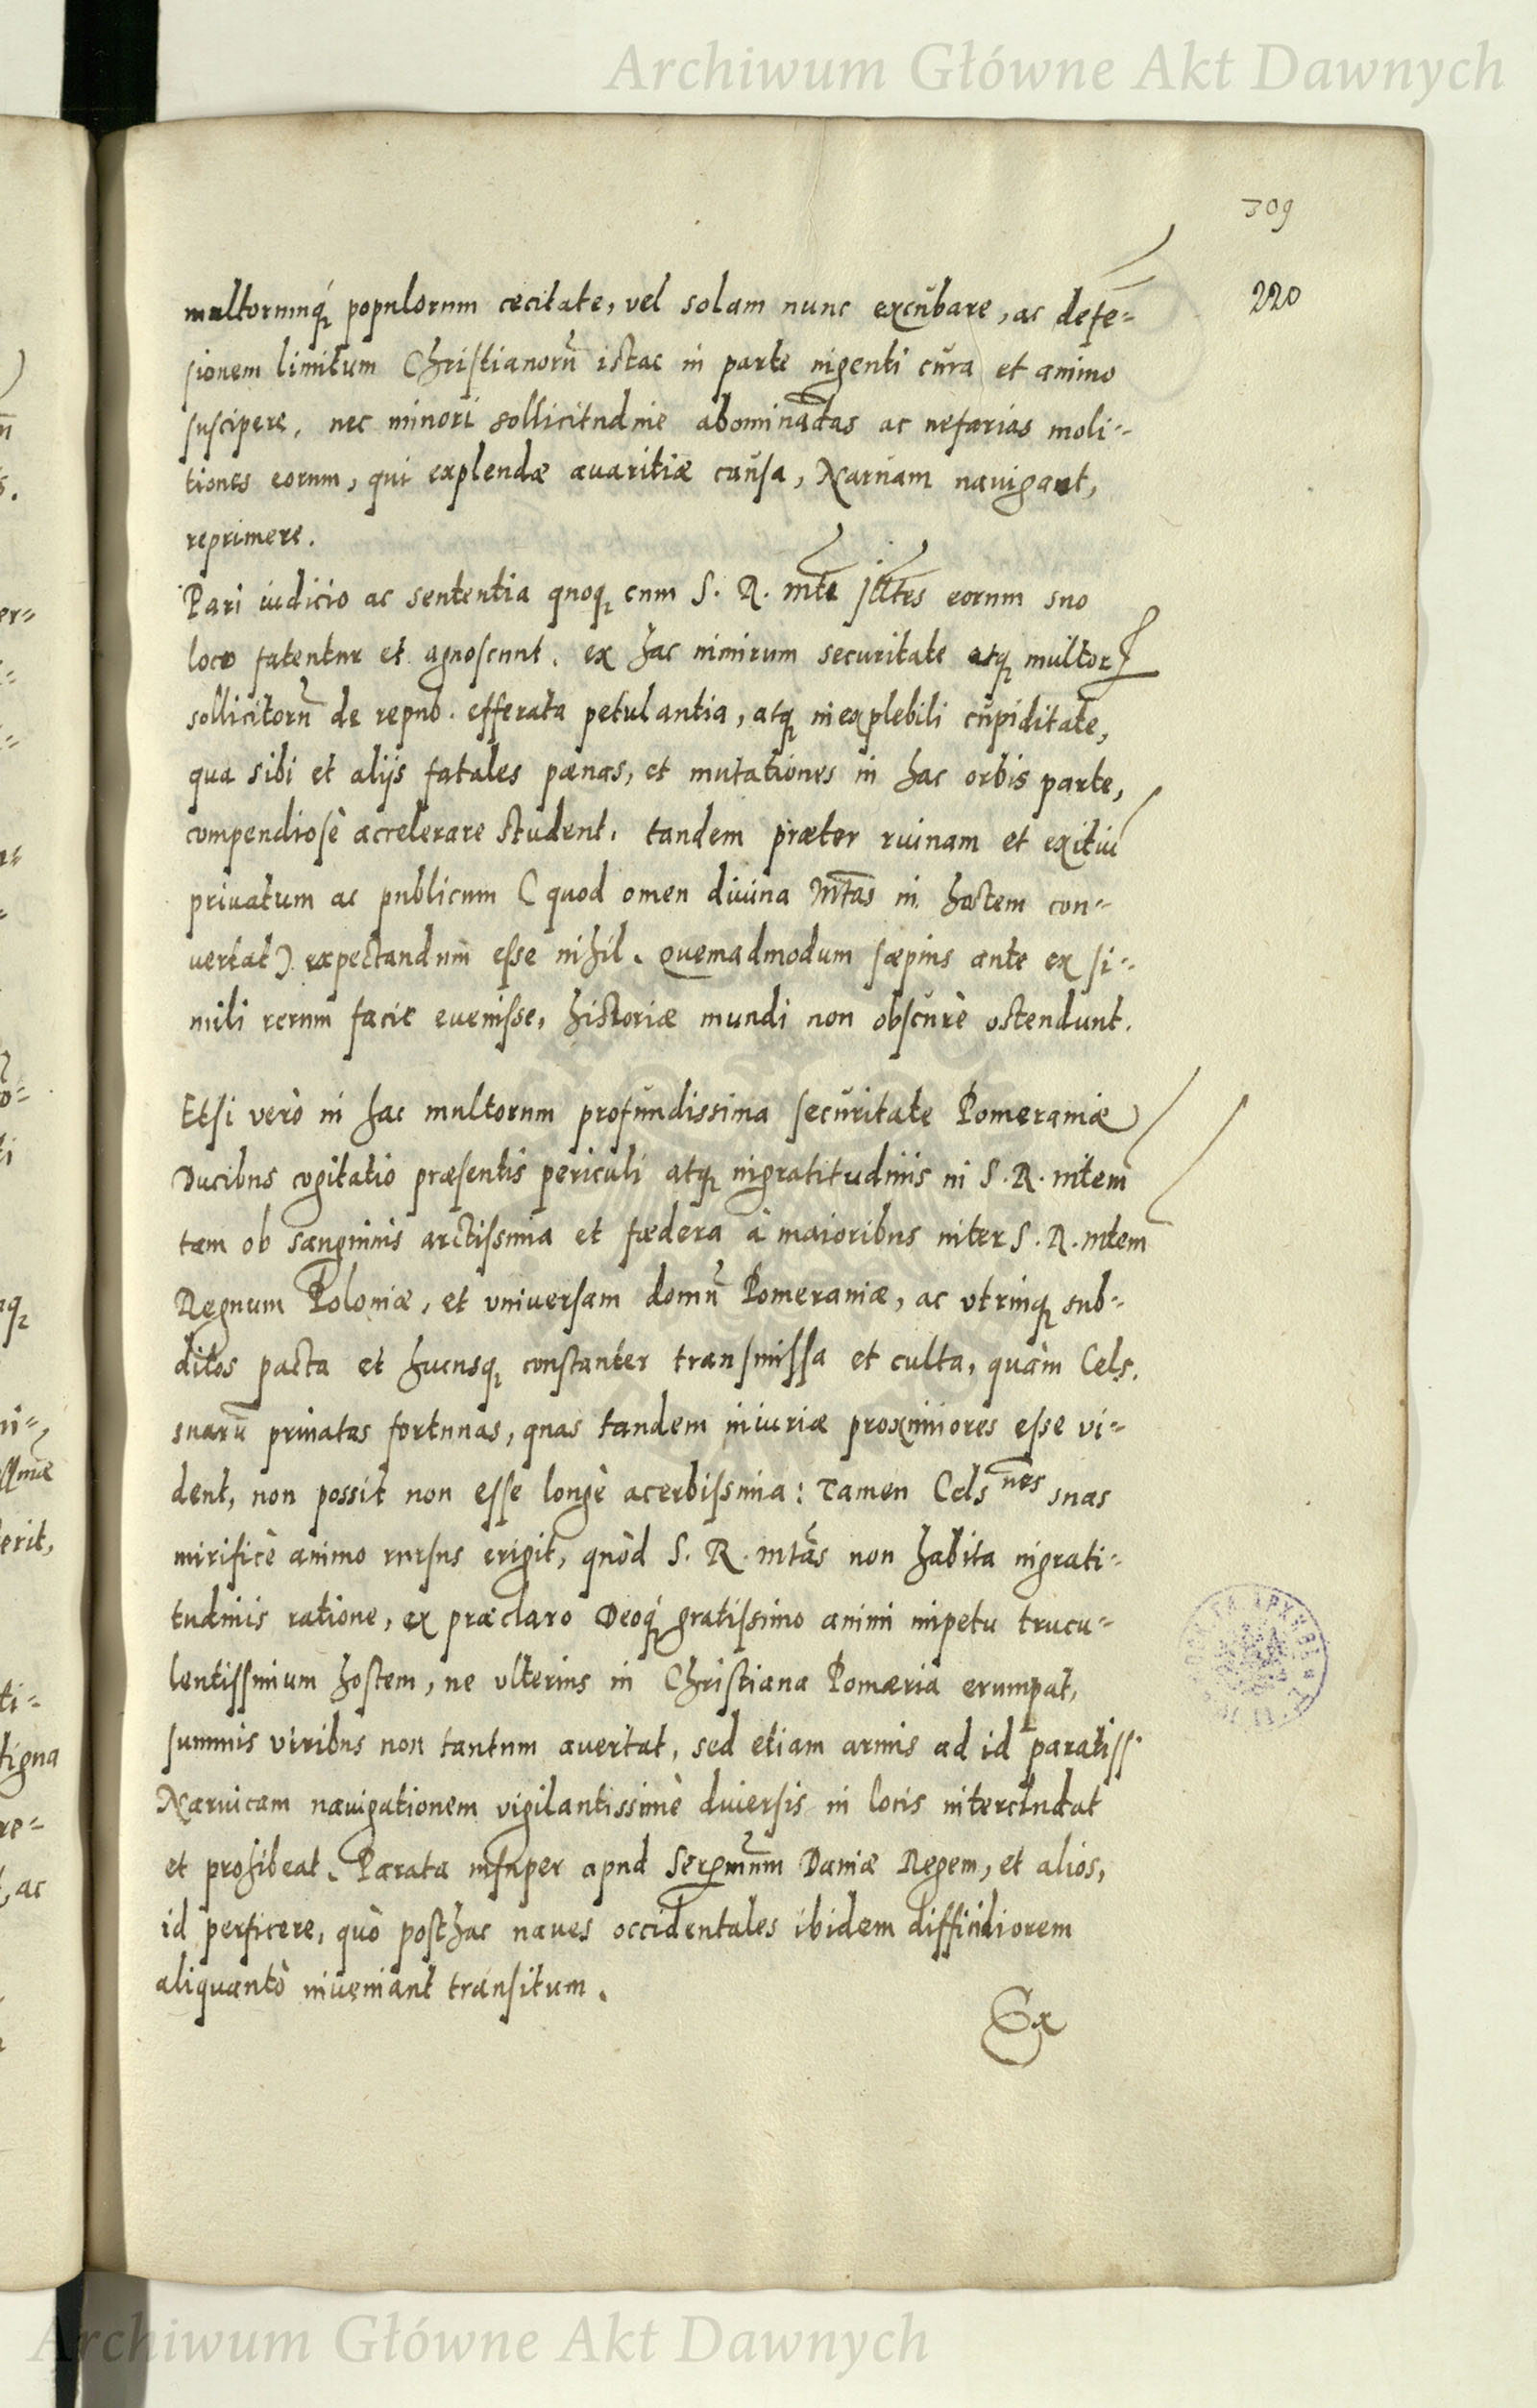 Archiwum Główne Akt Dawnych
309
220
multorumq́ꝫ populorum cecitate, vel solam nunc excubare, ac defe-
sionem limitum Christianorū istac in parte ingenti cura et animo
suscipere, nec minori sollicitudine abominādas ac nefarias moli-
tiones eorum, qui explendæ auaritiæ causa, Naruam nauigant,
reprimere.
Pari iudicio ac sententia quoqꝫ cum S. R. mte Illtes eorum suo
loco fatentur et agnoscunt, ex hac nimirum securitate atqꝫ multorꝝ
sollicitorū de repub. efferata petulantia, atqꝫ inexplebili cupiditate,
qua sibi et alijs fatales pœnas, et mutationes in hac orbis parte,
compendiosè accelerare student, tandem præter ruinam et exitiū
priuatum ac publicum (quod omen diuina Mtas in hostem con-
vertat) expectandum esse nihil. Quemadmodum sæpius ante ex si-
mili rerum facie euenisse, historiæ mundi non obscurè ostendunt.
Etsi verò in hac multorum profundissima securitate Pomeraniæ
Ducibus cogitatio præsentis periculi atqꝫ ingratitudinis in S. R. mtem
tam ob sanguinis arctissima et fœdera à maioribus inter S. R. mtem
Regnum Poloniæ, et vniuersam domū Pomeraniæ, ac vtrinqꝫ sub-
ditos pacta et hucusqꝫ constanter transmissa et culta, quàm Cels.
suarū priuatas fortunas, quas tandem iniuriæ proximiores esse vi-
dent, non possit non esse longè acerbissima: Tamen Celsnes suas
mirificè animo rursus erigit, quòd S. R. mtas non habita ingrati-
tudinis ratione, ex præclaro Deoq́ꝫ gratissimo animi impetu trucu-
lentissimum hostem, ne vlterius in Christiana Pomæria erumpat,
summis viribus non tantum auertat, sed etiam armis ad id paratiss.
Naruicam nauigationem vigilantissimè diuersis in locis intercludat
et prohibeat. Parata insuper apud Serenmum Daniæ Regem, et alios,
id perficere, quò posthac naues occidentales ibidem difficiliorem
aliquantò inueniant transitum.
Ex
Archiwum Główne Akt Dawnych